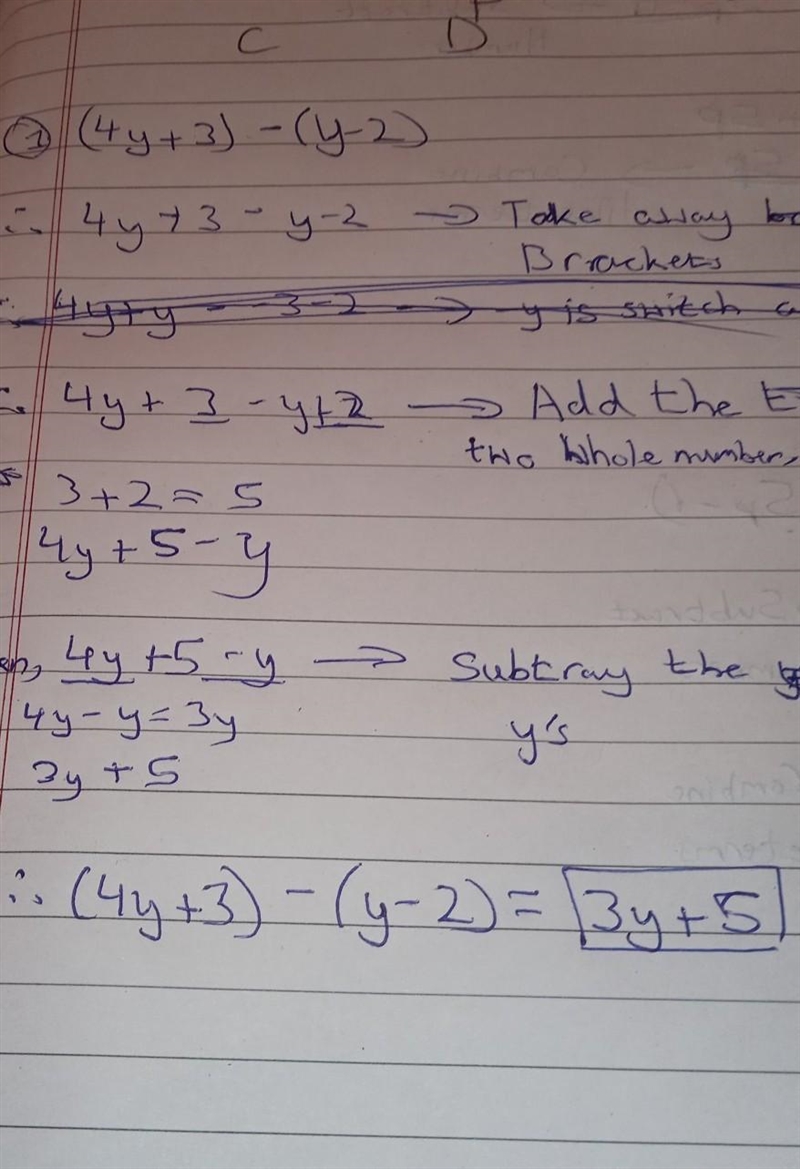 C D
② (4y+3) - (y-2)
∴ 4y+3 - y-2 → Take away
Brackets
4y+y - -3-2 → y is switch
∴ 4y + 3 - y+2 → Add the
two whole number,
3+2 = 5
4y + 5 - y
4y +5 - y → Subtray the
4y - y = 3y y's
3y + 5
∴ (4y+3) - (y-2) = 3y + 5